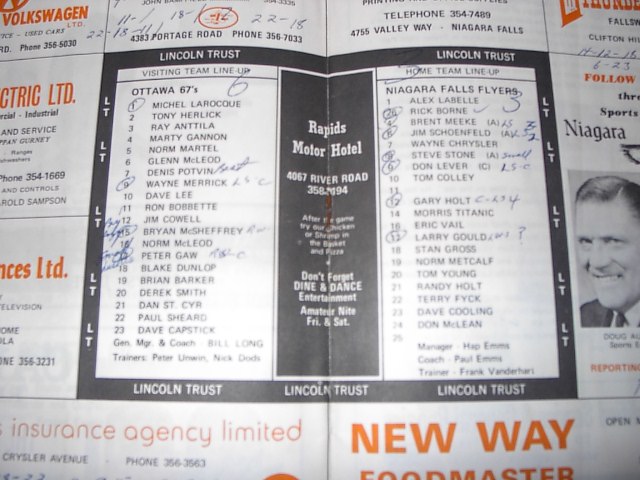 VOLKSWAGEN
LTD.
USED CARS
Phone 356-5030
22-18-11
11-1
18-
22-18
4383 PORTAGE ROAD PHONE 356-7033
PRINTING SUPPLIES
TELEPHONE 354-7489
4755 VALLEY WAY - NIAGARA FALLS
CLIFTON HILL
-12-16
6-23
FOLLOW
Sports
Niagara
DOUG
Sports E
REPORTING
ECTRIC LTD.
Commercial - Industrial
AND SERVICE
GURNEY
Ranges
Dishwashers
Phone 354-1669
AND CONTROLS
HAROLD SAMPSON
nces Ltd.
TELEVISION
HOME
PHONE 356-3231
LINCOLN TRUST
LINCOLN TRUST
VISITING TEAM LINE-UP
6
OTTAWA 67's
1 MICHEL LAROCQUE
2 TONY HERLICK
3 RAY ANTTILA
4 MARTY GANNON
5 NORM MARTEL
6 GLENN McLEOD
7 DENIS POTVIN
9 WAYNE MERRICK LS-C
10 DAVE LEE
11 RON BOBBETTE
12 JIM COWELL
15 BRYAN McSHEFFREY RW
16 NORM McLEOD
17 PETER GAW
18 BLAKE DUNLOP
19 BRIAN BARKER
20 DEREK SMITH
21 DAN ST. CYR
22 PAUL SHEARD
23 DAVE CAPSTICK
Gen. Mgr. & Coach - BILL LONG
Trainers: Peter Unwin, Nick Dods
LT
LT
LT
LT
Rapids
Motor Hotel
4067 RIVER ROAD
After the game
try our Chicken
or Shrimp in
the Basket
and Pizza
Don't Forget
DINE & DANCE
Entertainment
Amateur Nite
Fri. & Sat.
HOME TEAM LINE-UP
3
NIAGARA FALLS FLYERS
1 ALEX LABELLE
RICK BORNE
4 BRENT MEEKE (A)
JIM SCHOENFELD (A)
7 WAYNE CHRYSLER
8 STEVE STONE (A) small
9 DON LEVER (C) LS-C
10 TOM COLLEY
12 GARY HOLT
14 MORRIS TITANIC
16 ERIC VAIL
17 LARRY GOULD ?
18 STAN GROSS
19 NORM METCALF
20 TOM YOUNG
21 RANDY HOLT
22 TERRY FYCK
23 DAVE COOLING
24 DON McLEAN
25
Manager - Hap Emms
Coach - Paul Emms
Trainer - Frank Vanderhart
LT
LT
LT
LT
LINCOLN TRUST
LINCOLN TRUST
LINCOLN TRUST
s insurance agency limited
CRYSLER AVENUE PHONE 356-3563
NEW WAY
FOODMASTER
OPEN